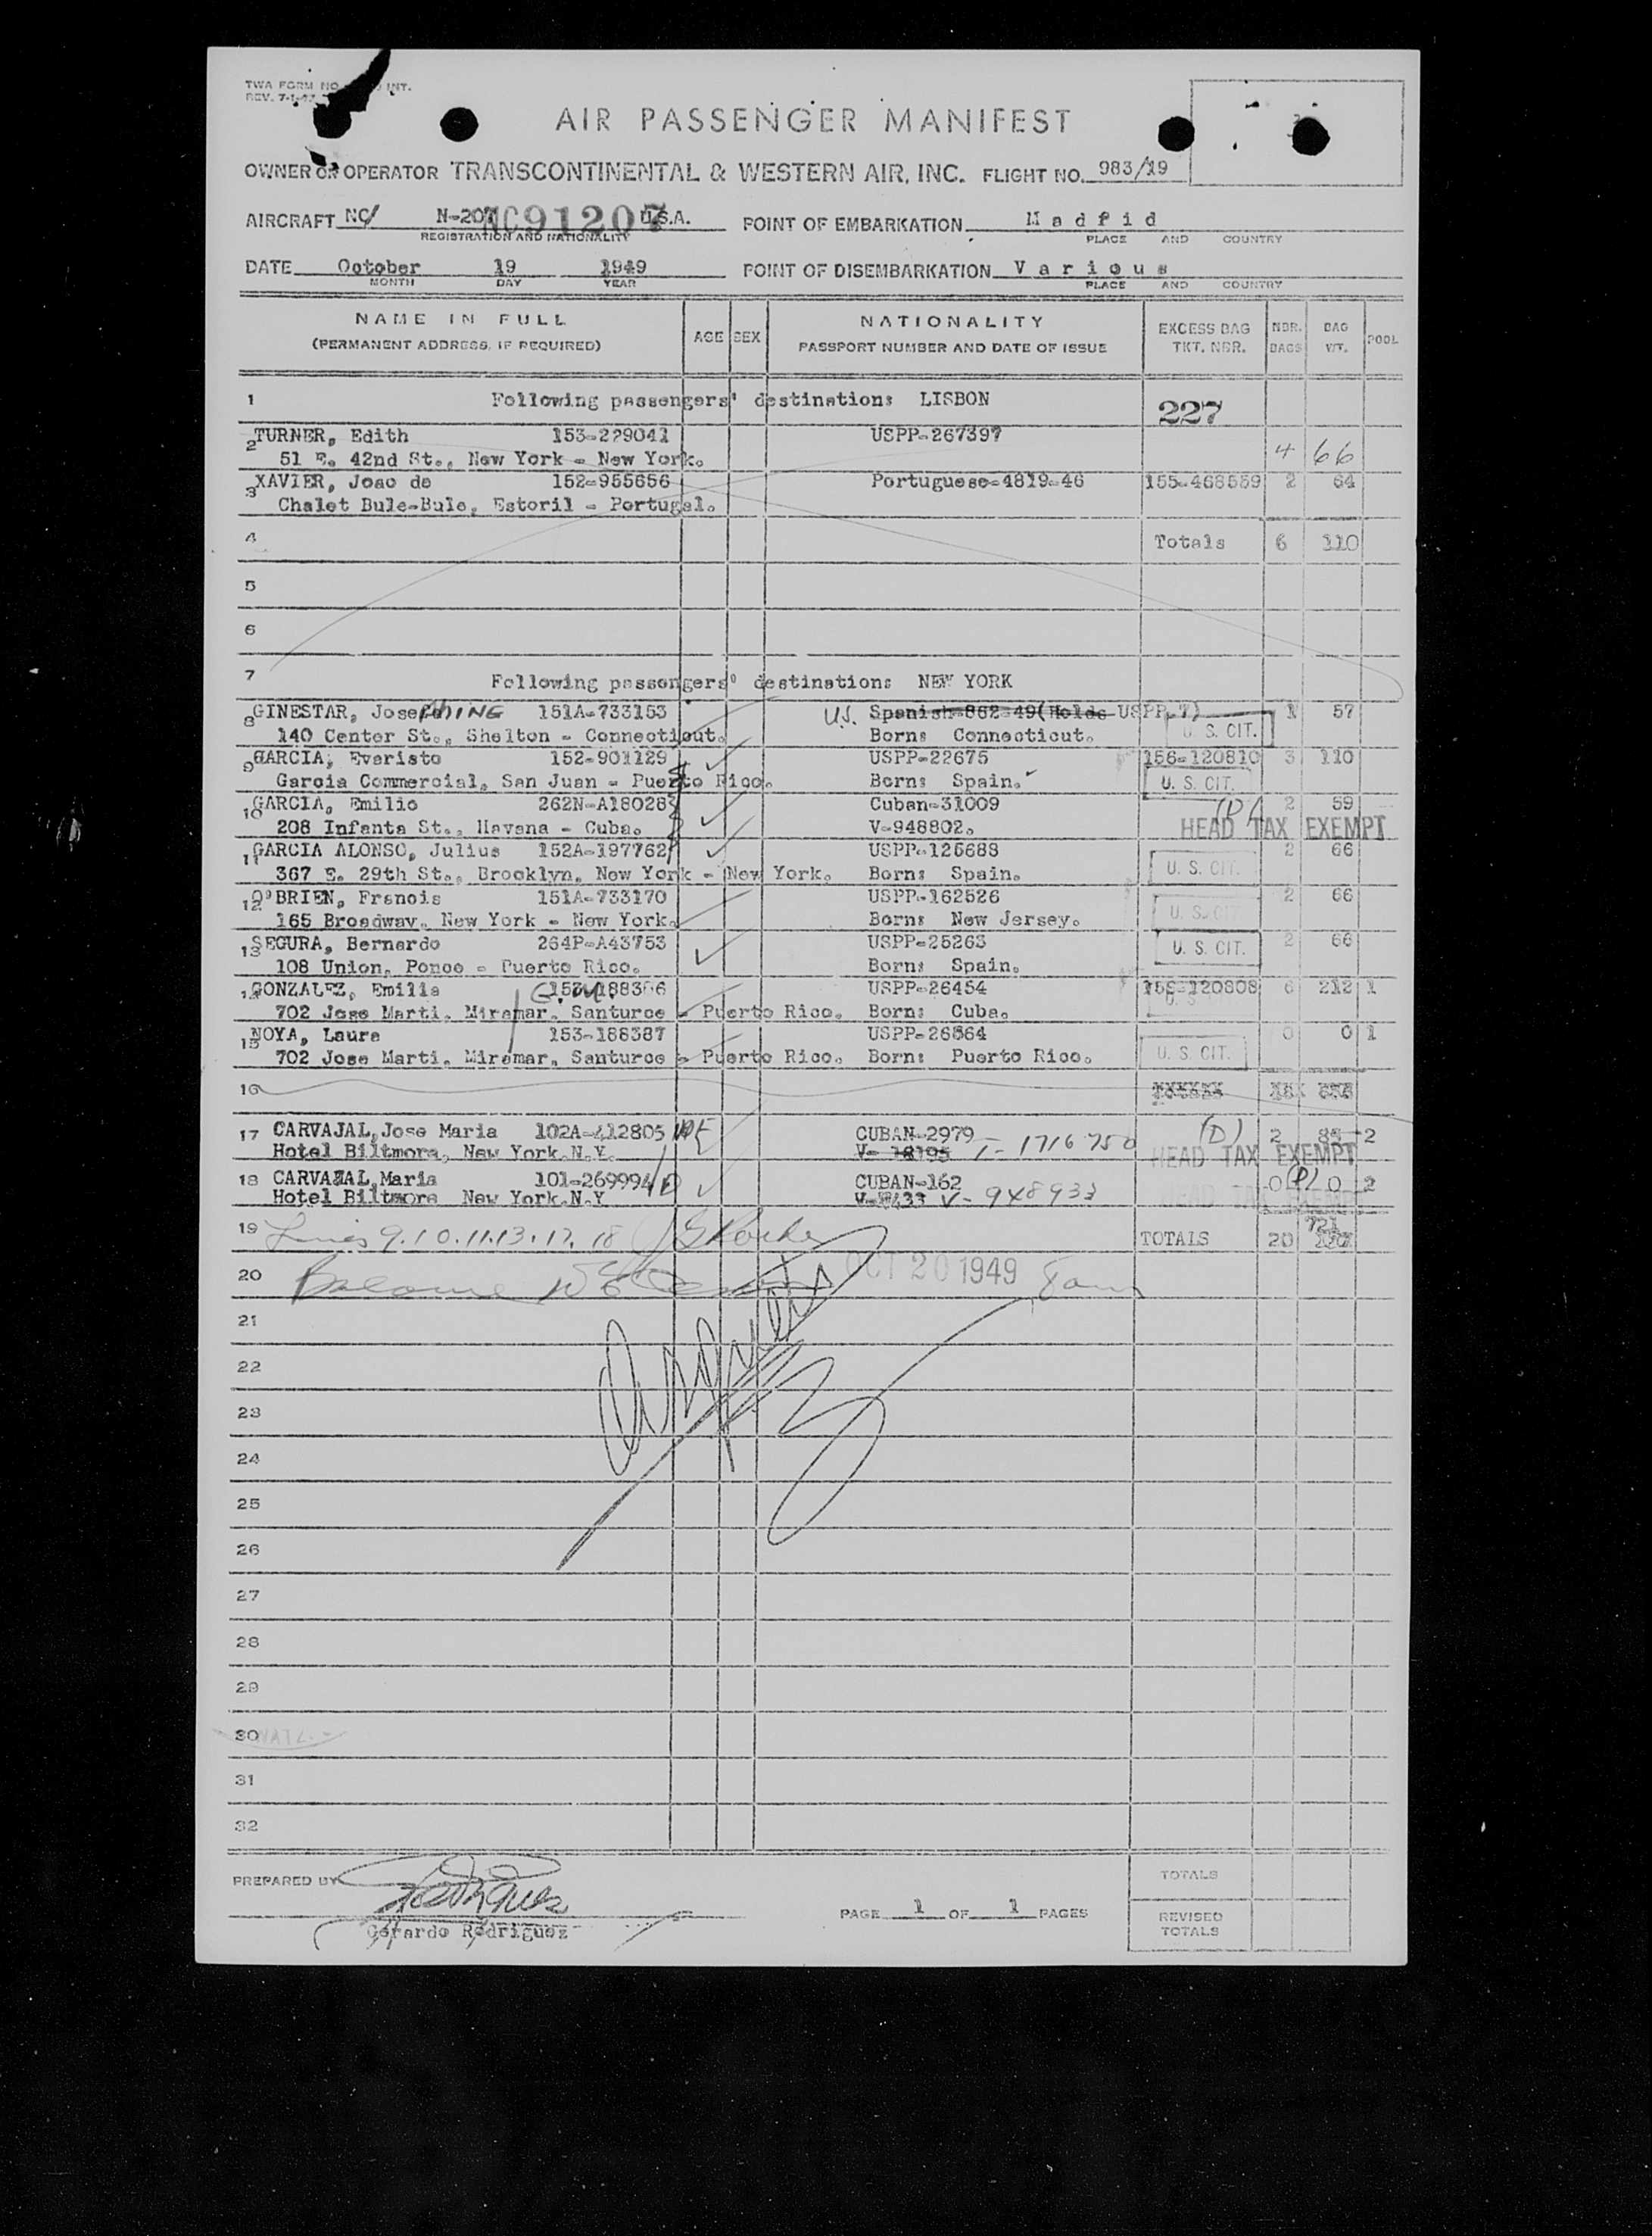 TWA FORM NO. INT.
REV. 7-1-47
AIR PASSENGER MANIFEST
OWNER OR OPERATOR TRANSCONTINENTAL & WESTERN AIR, INC. FLIGHT NO. 983/19
AIRCRAFT NC/ N-207 NC91207 U.S.A. POINT OF EMBARKATION Madrid
REGISTRATION AND NATIONALITY PLACE AND COUNTRY
DATE October 19 1949 POINT OF DISEMBARKATION Various
MONTH DAY YEAR PLACE AND COUNTRY
NAME IN FULL AGE SEX NATIONALITY EXCESS BAG NBR. BAG POOL
(PERMANENT ADDRESS, IF REQUIRED) PASSPORT NUMBER AND DATE OF ISSUE TKT. NBR. BAGS WT.
1 Following passengers' destination: LISBON 227
2 TURNER, Edith 153-229041 USPP-267397 4 66
51 E. 42nd St., New York - New York.
3 XAVIER, Joao de 152-955656 Portuguese-4819-46 155-468559 2 64
Chalet Bule-Bule, Estoril - Portugal.
4 Totals 6 110
5
6
7 Following passengers' destination: NEW YORK
8 GINESTAR, Josephine 151A-733153 U.S. Spanish-862-49(Holds USPP.?) 1 57
140 Center St., Shelton - Connecticut. Born: Connecticut. U. S. CIT.
9 GARCIA, Evaristo 152-901129 USPP-22675 156-120810 3 110
Garcia Commercial, San Juan - Puerto Rico. Born: Spain. U. S. CIT.
10 GARCIA, Emilio 262N-A18028 Cuban-31009 (D) 2 59
208 Infanta St., Havana - Cuba. V-948802. HEAD TAX EXEMPT
11 GARCIA ALONSO, Julius 152A-197762 USPP-125688 2 66
367 E. 29th St., Brooklyn, New York - New York. Born: Spain. U. S. CIT.
12 O'BRIEN, Francis 151A-733170 USPP-162526 2 66
165 Broadway, New York - New York. Born: New Jersey. U. S. CIT
13 SEGURA, Bernardo 264P-A43753 USPP-25263 2 66
108 Union, Ponce - Puerto Rico. Born: Spain. U. S. CIT.
14 GONZALEZ, Emilia G.M. 153-188386 USPP-26454 156-120808 6 212 1
702 Jose Marti, Miramar, Santurce - Puerto Rico. Born: Cuba. U. S.
15 NOYA, Laura 153-188387 USPP-26564 0 0 1
702 Jose Marti, Miramar, Santurce - Puerto Rico. Born: Puerto Rico. U. S. CIT.
16
17 CARVAJAL, Jose Maria 102A-412805 CUBAN-2979 (D) 2 85 2
Hotel Biltmore, New York.N.Y. V- 18195 V- 1716750 HEAD TAX EXEMPT
18 CARVAJAL, Maria 101-269994 CUBAN-162 0 (D) 0 2
Hotel Biltmore New York.N.Y V- 948933 HEAD TAX EXEMPT
19 Lines 9.10.11.13.17.18 TOTALS 20 721
20 Balance OCT 20 1949
21
22
23
24
25
26
27
28
29
30
31
32
PREPARED BY TOTALS
PAGE 1 OF 1 PAGES REVISED TOTALS
Gerardo Rodriguez